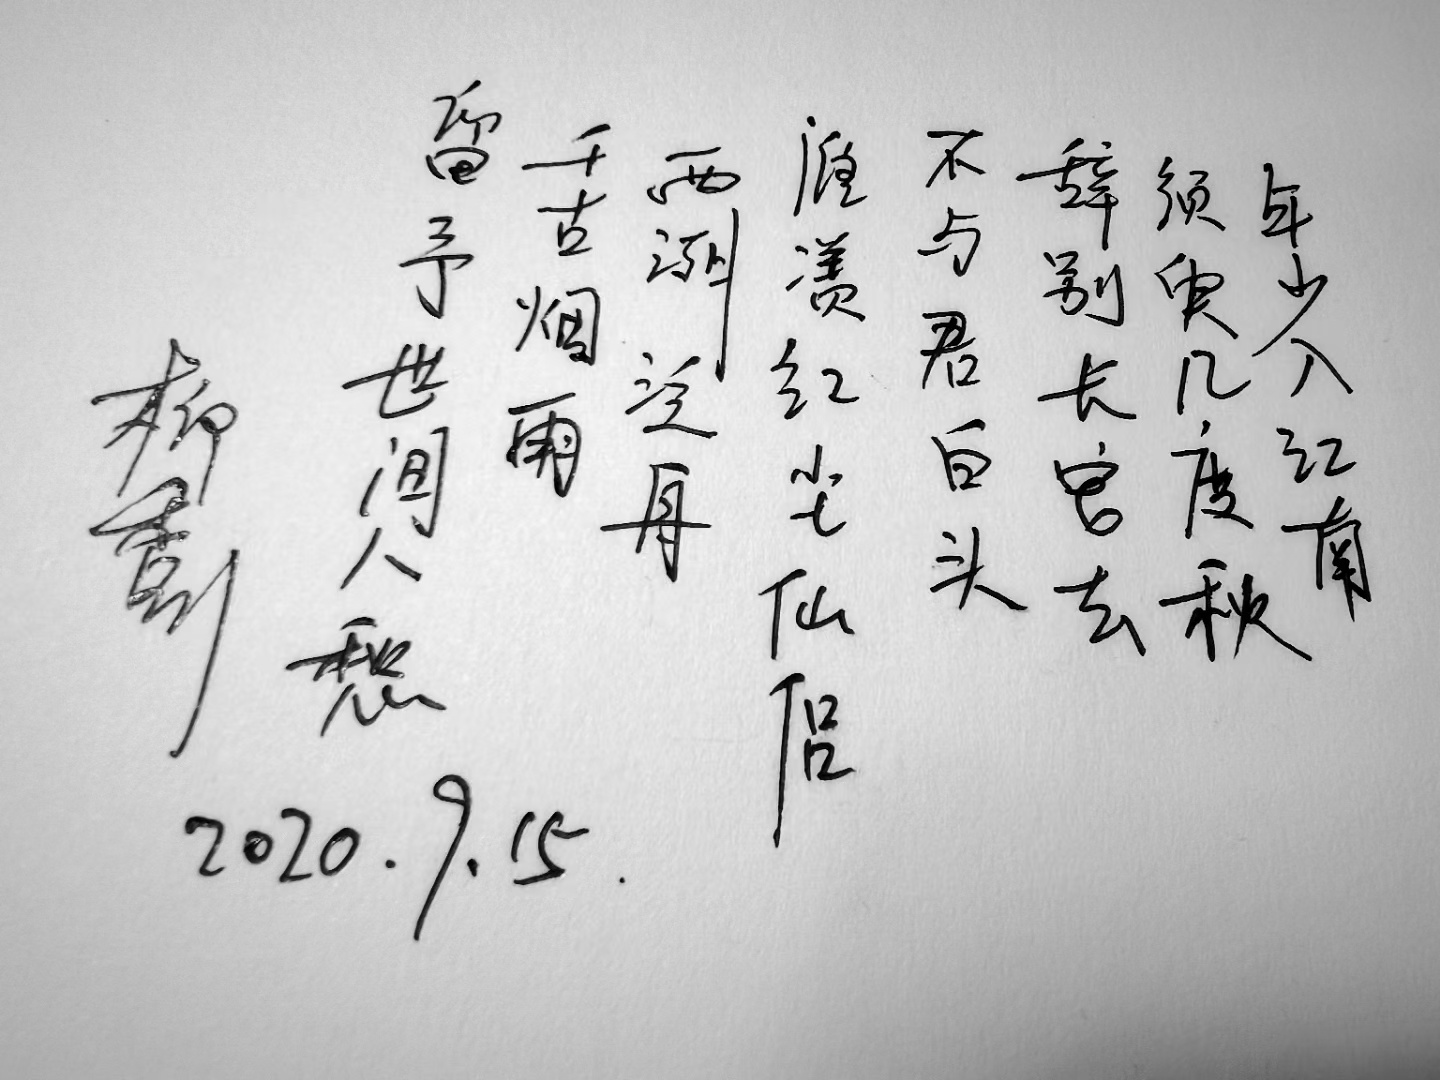 年少入江南
须臾几度秋
辞别长官去
不与君白头
涯漢红尘仙侣
西湖泛舟
千古烟雨
留予世间人愁
柳
2020.9.15.